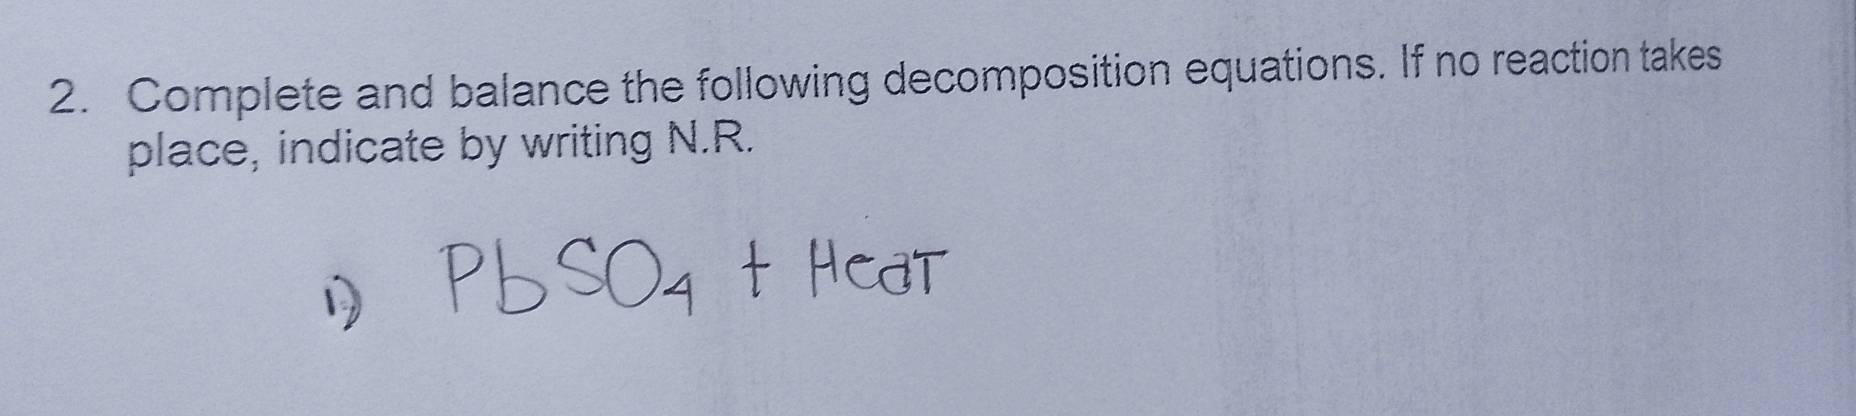 2. Complete and balance the following decomposition equations. If no reaction takes
place, indicate by writing N.R.
1) PbSO₄ + Heat